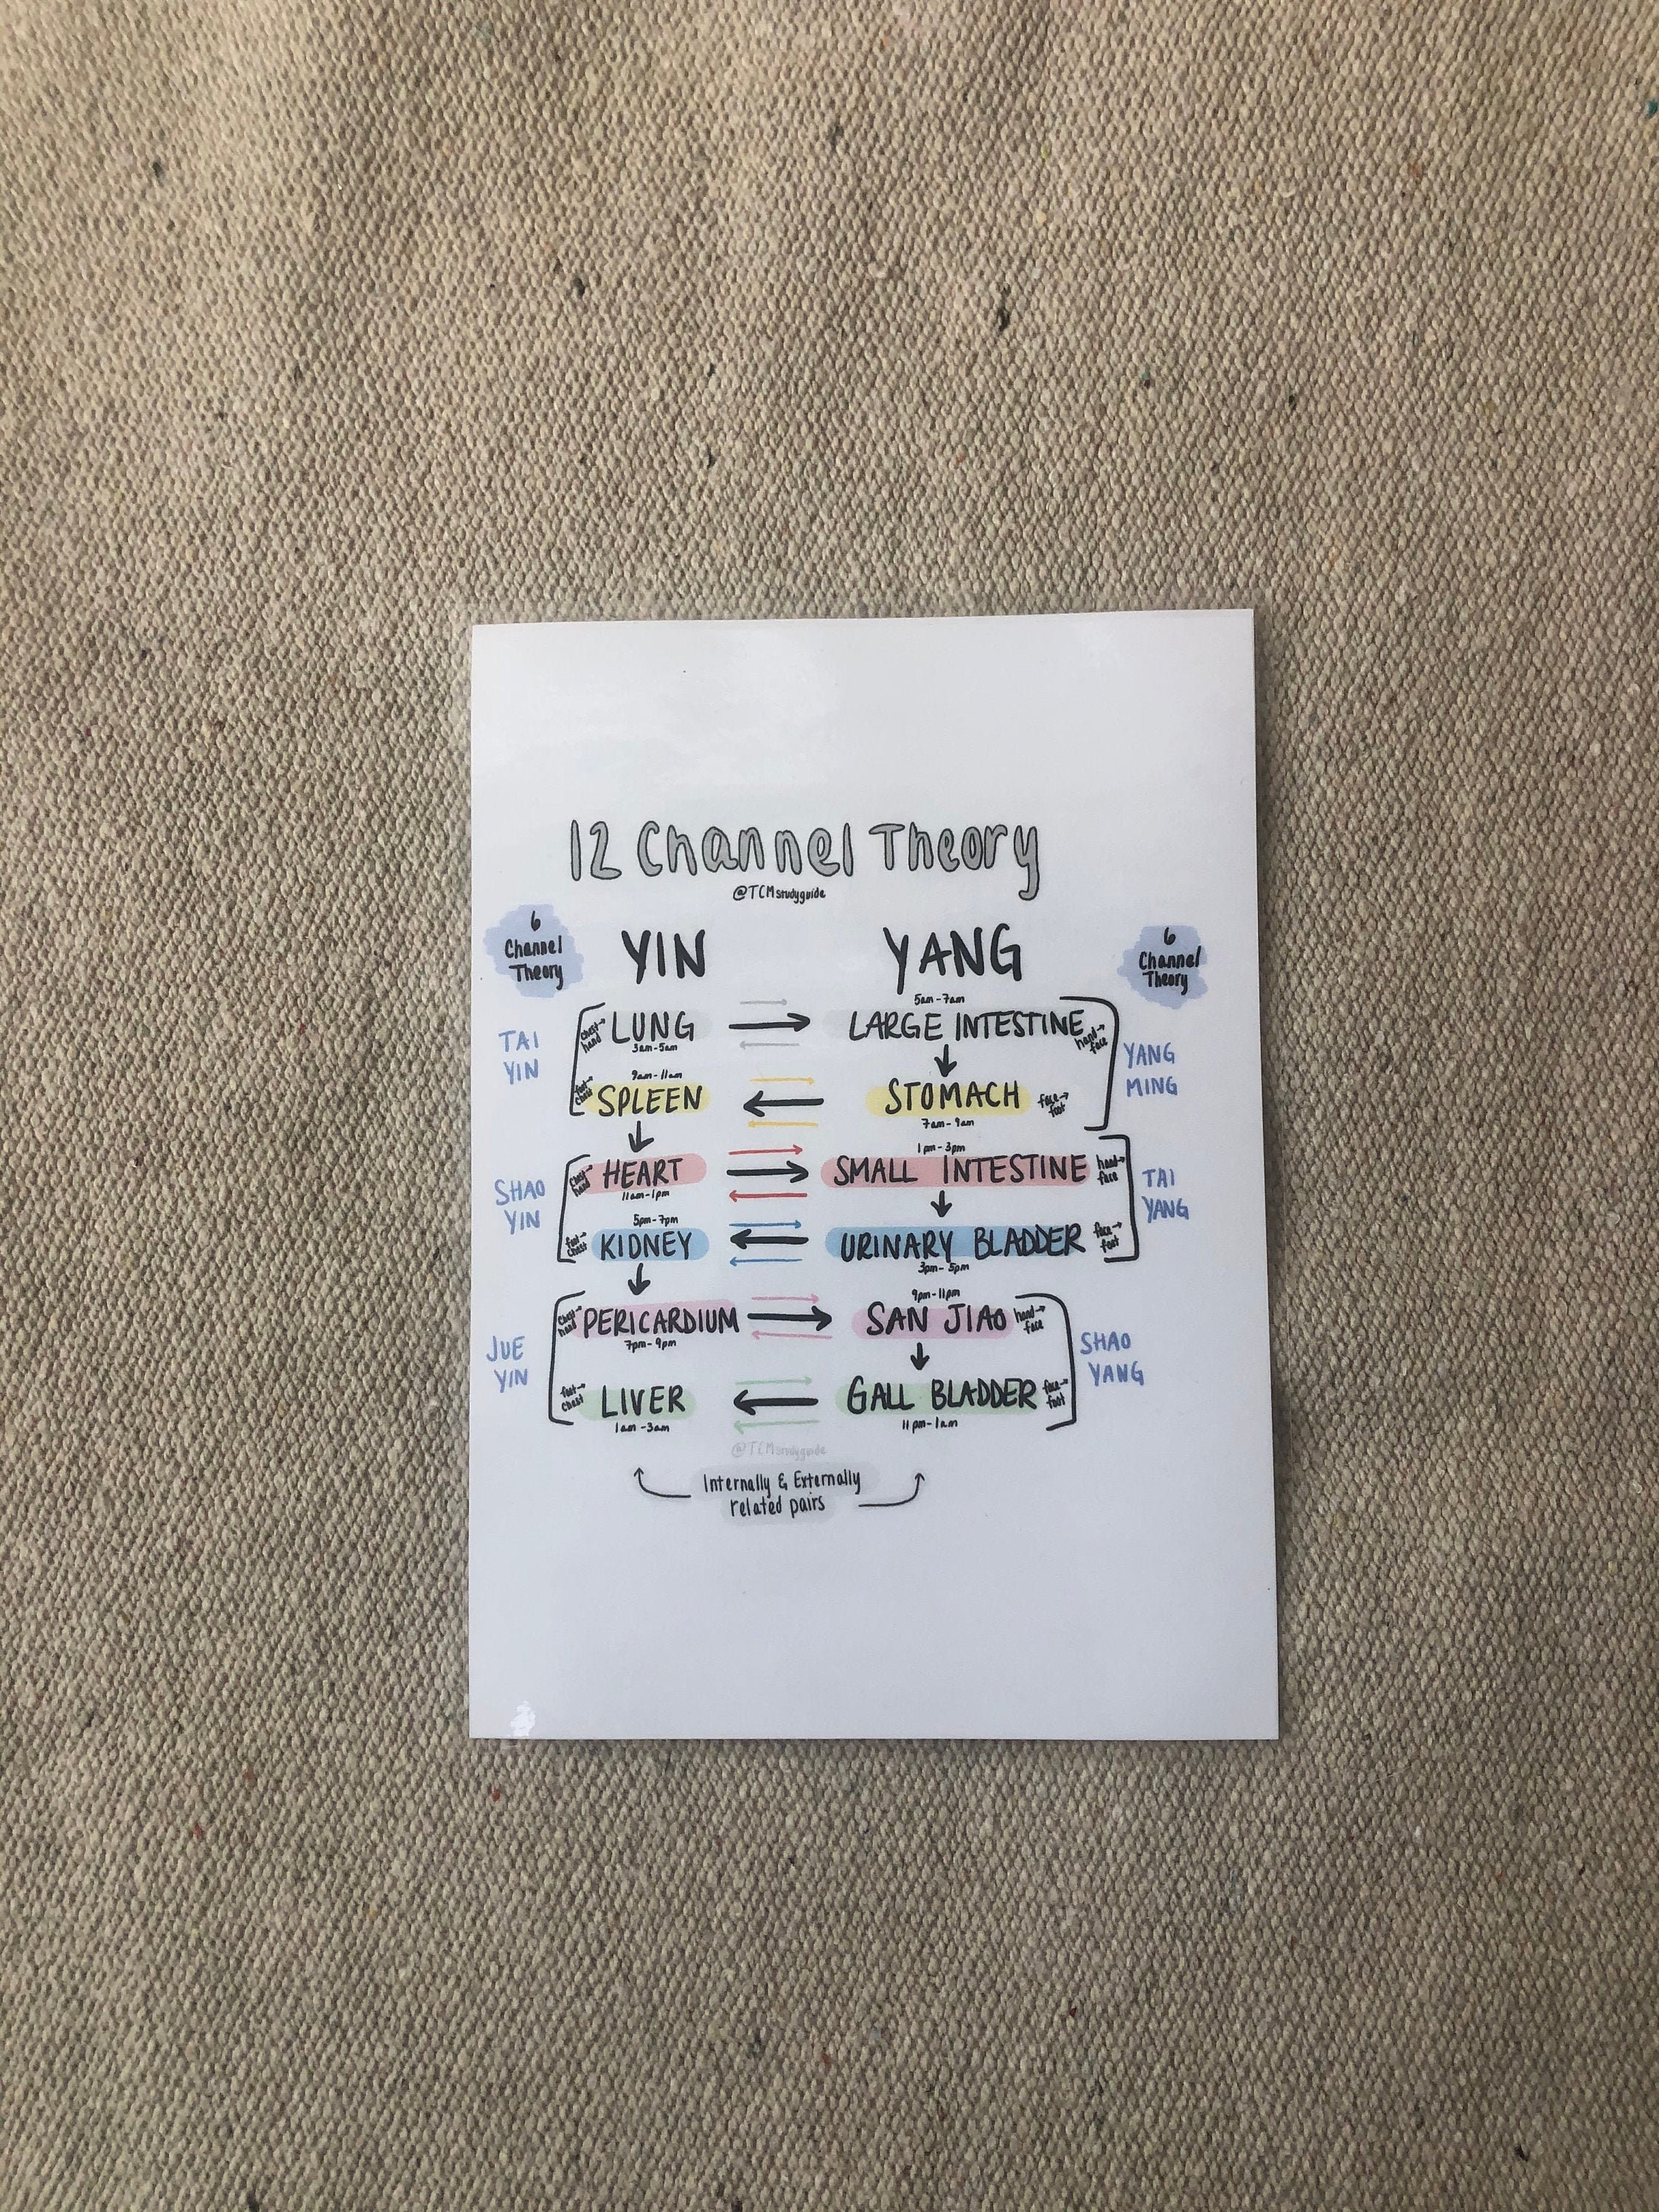 12 Channel Theory
@TCMstudyguide
6
Channel
Theory
YIN
YANG
6
Channel
Theory
TAI
YIN
chest→
hand
LUNG
3am-5am
5am-7am
LARGE INTESTINE
hand→
face
YANG
MING
9am-11am
foot→
chest
SPLEEN
STOMACH
7am-9am
face→
foot
SHAO
YIN
chest→
hand
HEART
11am-1pm
1pm-3pm
SMALL INTESTINE
hand→
face
TAI
YANG
5pm-7pm
foot→
chest
KIDNEY
URINARY BLADDER
3pm-5pm
face→
foot
JUE
YIN
chest→
hand
PERICARDIUM
7pm-9pm
9pm-11pm
SAN JIAO
hand→
face
SHAO
YANG
foot→
chest
LIVER
1am-3am
GALL BLADDER
11pm-1am
face→
foot
@TCMstudyguide
Internally & Externally
related pairs